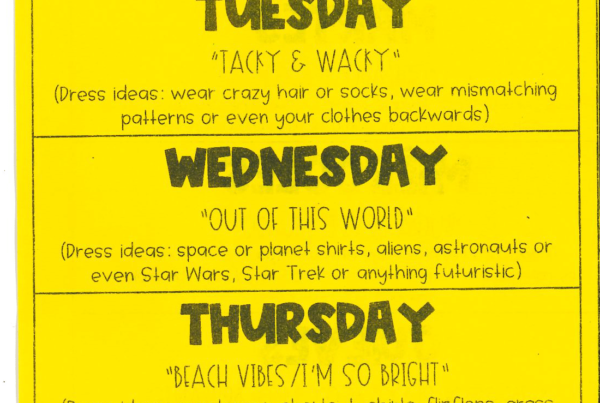 TUESDAY
"TACKY & WACKY"
(Dress ideas: wear crazy hair or socks, wear mismatching
patterns or even your clothes backwards)
WEDNESDAY
"OUT OF THIS WORLD"
(Dress ideas: space or planet shirts, aliens, astronauts or
even Star Wars, Star Trek or anything futuristic)
THURSDAY
"BEACH VIBES/I'M SO BRIGHT"